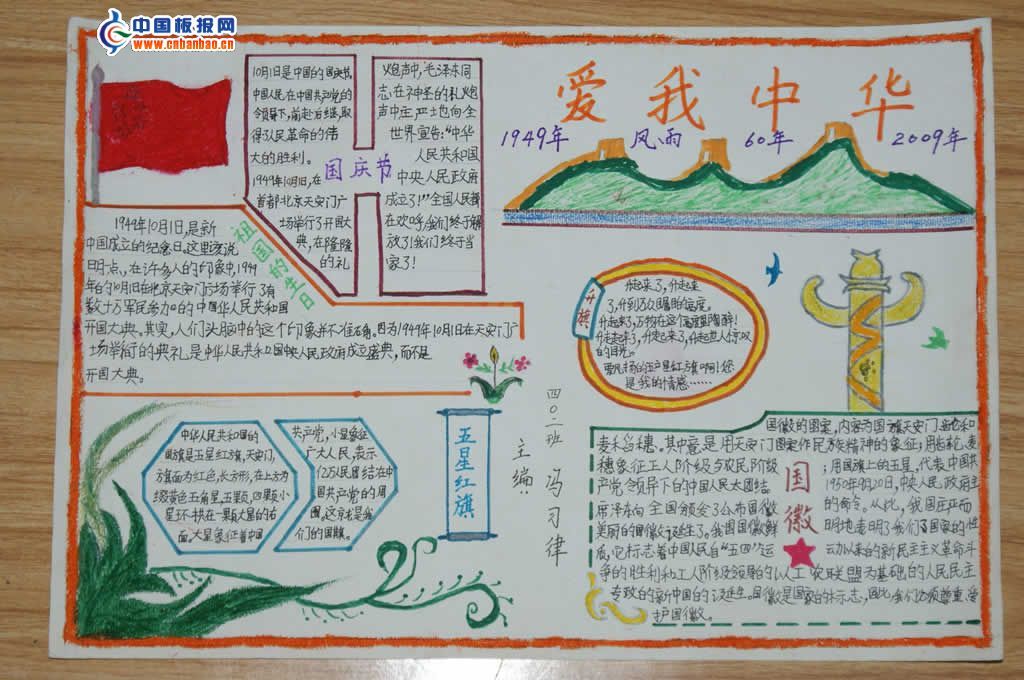 中国板报网
www.cnbanbao.cn
爱我中华
1949年 风雨 60年 2009年
国庆节
10月1日是中国的国庆节,
中国人民在中国共产党的
领导下,前赴后继,取
得了人民革命的伟
大的胜利。
1949年10月1日,在
首都北京天安门广
场举行了开国大
典,在隆隆
的礼
炮声中,毛泽东同
志在神圣的礼炮
声中庄严地向全
世界宣告:“中华
人民共和国
中央人民政府
成立了!”全国人民都
在欢呼,我们终于解
放了!我们终于当
家了!
祖国的生日
1949年10月1日,是新
中国成立的纪念日。这里应该说
明一点,在许多人的印象中,1949
年的10月1日在北京天安门广场举行了有
数十万军民参加的中国华人民共和国
开国大典。其实,人们头脑中的这个印象并不准确。因为1949年10月1日在天安门广
场举行的典礼是中华人民共和国中央人民政府成立盛典,而不是
开国大典。
升旗
升起来了,升起座
了,升到万众瞩目的高度。
的目光。
是我的情感……
四〇二班 冯习律
主编:
五星红旗
中华人民共和国的
国旗是五星红旗,天安门,
旗面为红色,长方形,在上方为
缀黄色五角星,五颗,四颗小
星环拱在一颗大星的右
面,大星象征着中国
共产党,小星象征
广大人民,表示
亿万人民团结在中
国共产党的周
围。这就是我
们的国旗。
国徽
国徽的图案,内容为国旗天安门齿轮和
麦禾谷穗。其中竟是用天安门图案作民族精神的象征;用齿轮、麦
穗象征工人阶级与农民阶级;用国旗上的五星,代表中国共
产党领导下的中国人民大团结。1950年9月20日,中央人民政府主
席泽东向全国颁变了公布国徽的命令。从此,我国庄严而
美丽的国徽诞生了。我国国徽鲜明地表明了我们国家的性
质,它标志着中国人民自“五四”运动以来的新民主主义革命斗
争的胜利和工人阶级领导的以工农联盟为基础的人民民主
专政的新中国的诞生。国徽是国家的标志,因此我们必须尊重、爱
护国徽。